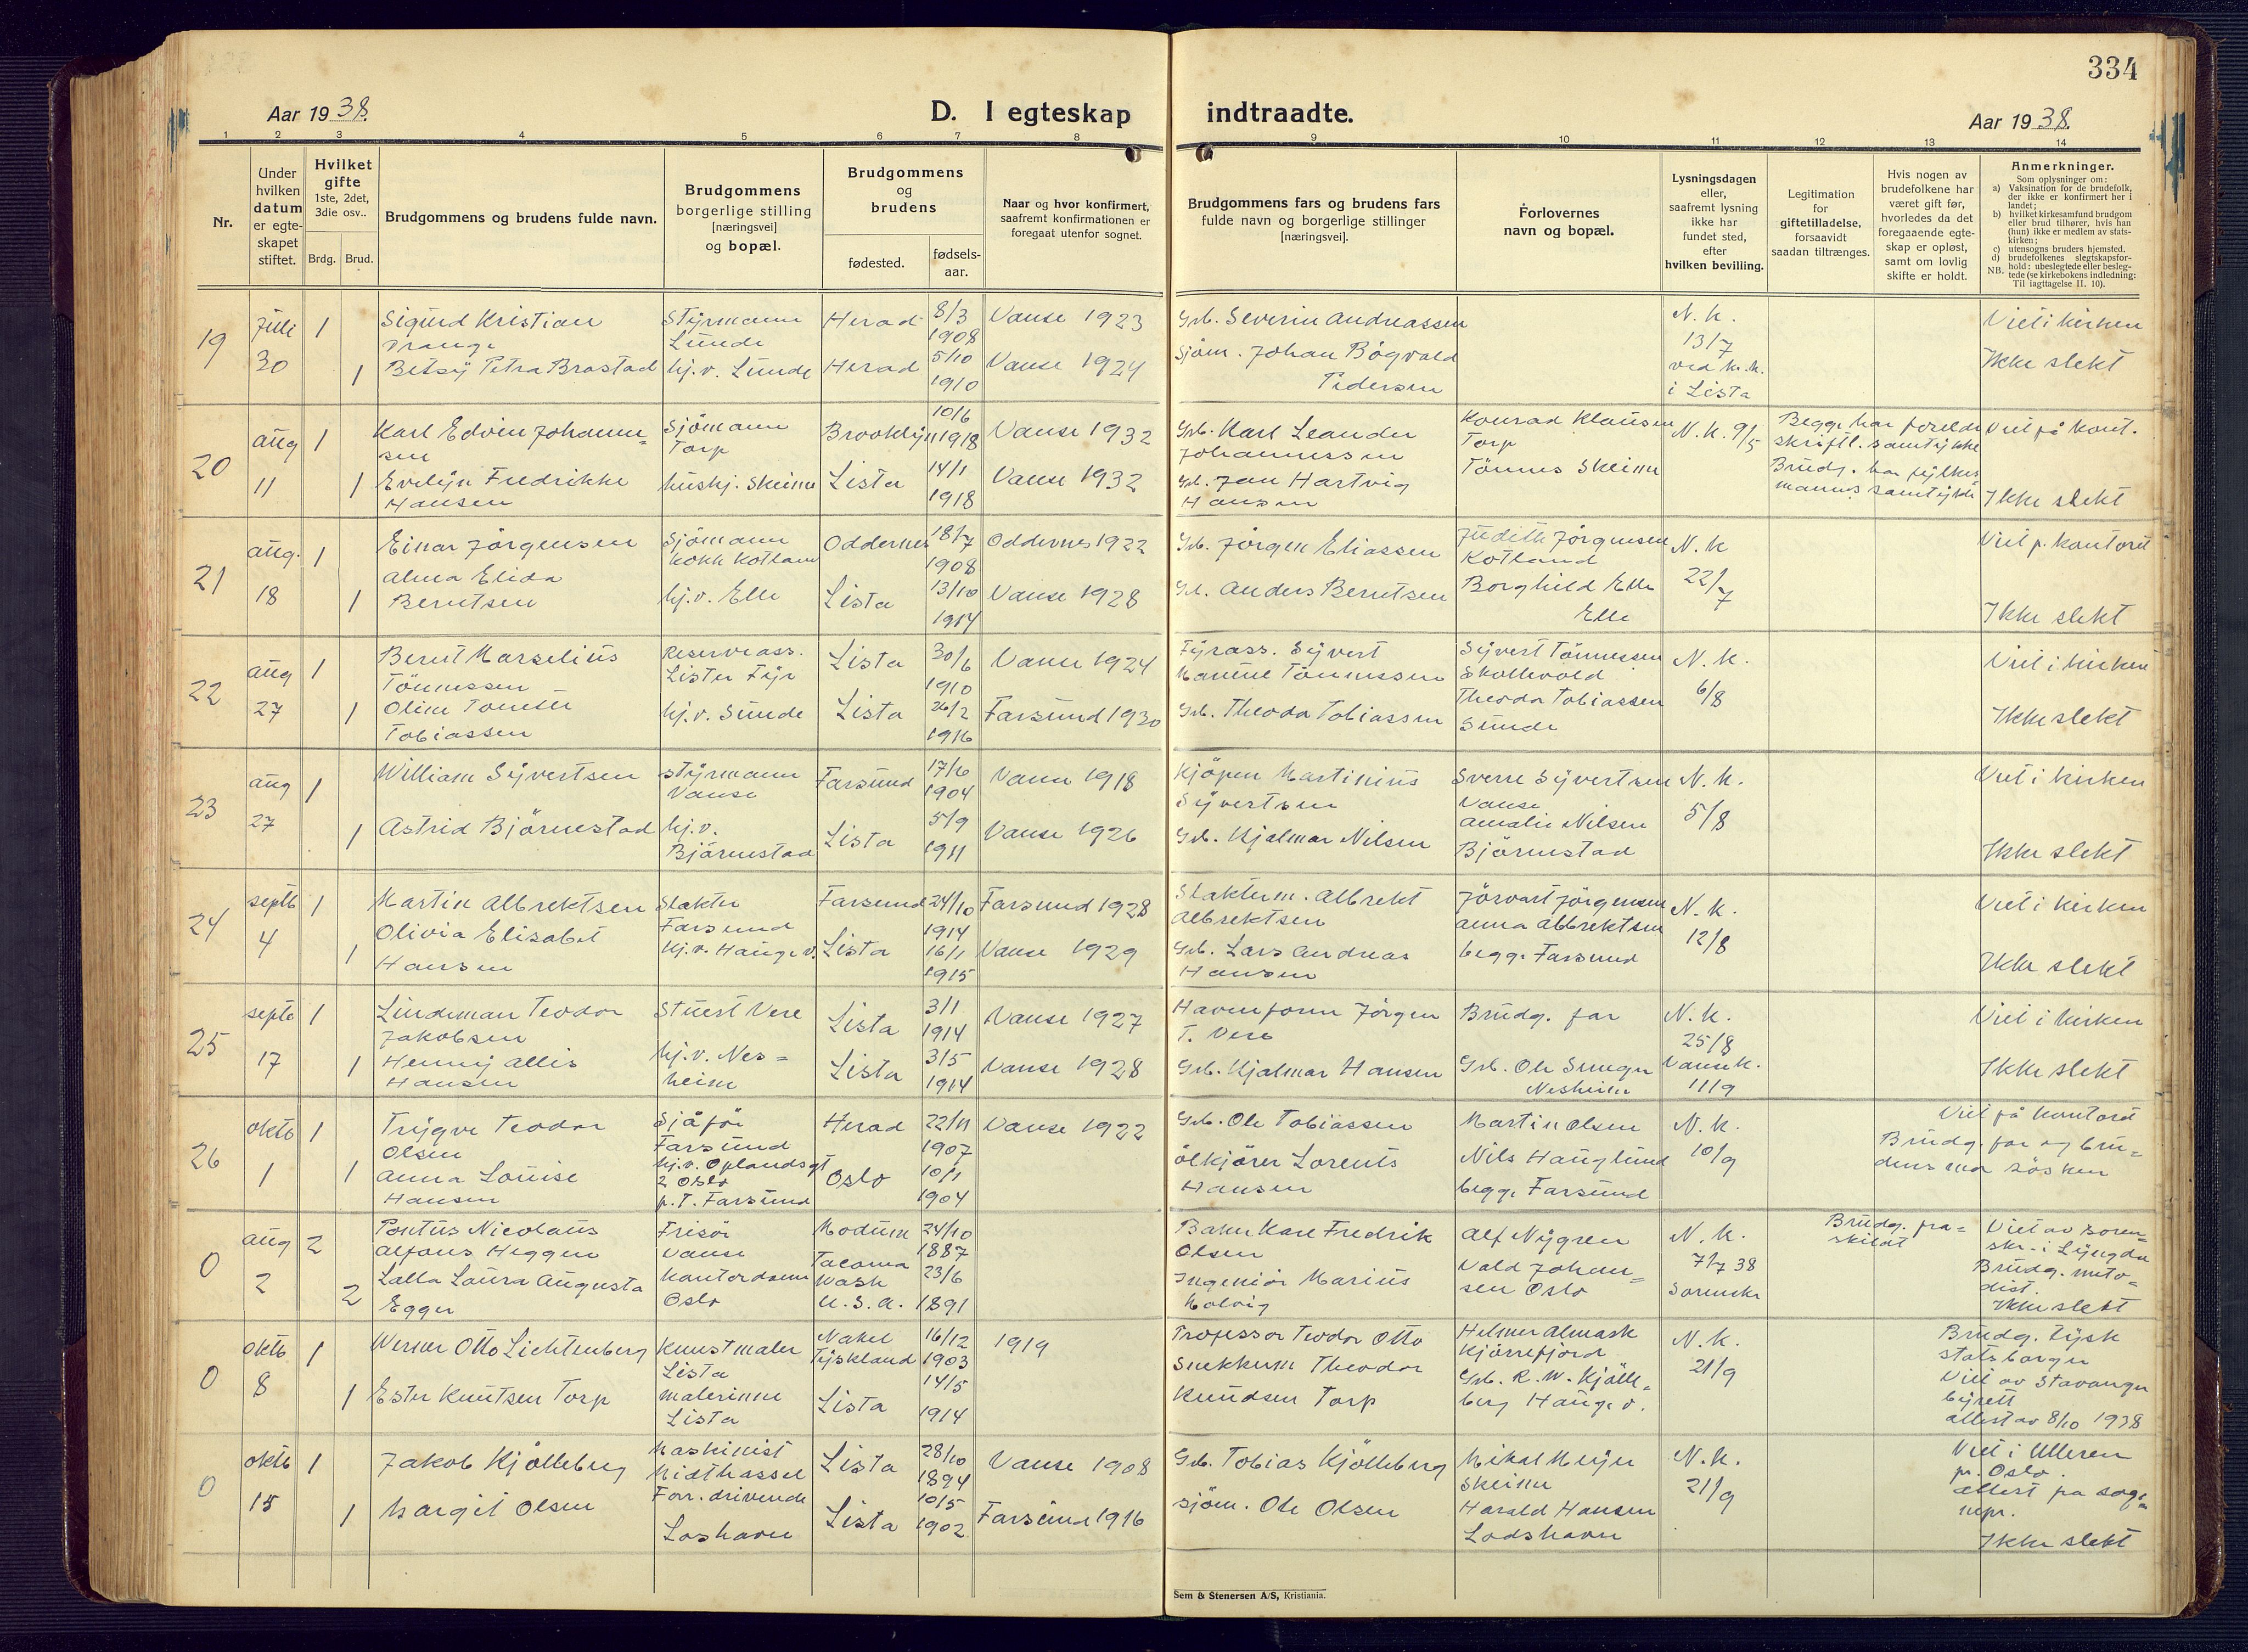 334
Aar 1938.
D. I egteskap indtraadte.
Aar 1938.
1 2 3 4 5 6 7 8 9 10 11 12 13 14
Nr.
Under hvilken datum er egte-skapet stiftet.
Hvilket gifte
1ste, 2det, 3die osv..
Brdg. Brud.
Brudgommens og brudens fulde navn.
Brudgommens borgerlige stilling [næringsvei] og bopæl.
Brudgommens og brudens
fødested.
fødsels-aar.
Naar og hvor konfirmert, saafremt konfirmationen er foregaat utenfor sognet.
Brudgommens fars og brudens fars fulde navn og borgerlige stillinger [næringsvei].
Forlovernes navn og bopæl.
Lysningsdagen eller, saafremt lysning ikke har fundet sted, efter hvilken bevilling.
Legitimation for giftetilladelse, forsaavidt saadan tiltrænges.
Hvis nogen av brudefolkene har været gift før, hvorledes da det foregaaende egte-skap er opløst, samt om lovlig skifte er holdt.
Anmerkninger.
Som oplysninger om:
a) Vaksination for de brudefolk, der ikke er konfirmert her i landet;
b) hvilket kirkesamfund brudgom eller brud tilhører, hvis han (hun) ikke er medlem av stats-kirken;
c) utensogns bruders hjemsted.
d) brudefolkenes slegtskapsfor-hold: ubeslegtede eller besleg-tede (se kirkebokens indledning: Til iagttagelse II. 10).
NB.
19 Juli 30 1 Sigurd Kristian Prange Styrmann Lunde Herad 8/3 1908 Vanse 1923 Grb. Severin Andreassen N. k. 13/7 ved kr.k. i Lista Viet i kirken
1 Betsy Petra Brastad hj.v. Lunde Herad 5/10 1910 Vanse 1924 Sjøm. Johan Bøgvald Pedersen Ikke slekt
20 aug 11 1 Karl Edvin Johannessen Sjömann Torp Brooklyn 10/6 1918 Vanse 1932 Grb. Karl Leander Johannessen Konrad Klausen Torp N. k. 9/5 Begge har foreldr skriftl. samtykke Viet på kont.
1 Evelyn Fredrikke Hansen hushj. Skeime Lista 14/1 1918 Vanse 1932 Grb. Jan Hartvig Hansen Tönnes Skeime Brudg. har fylkesmanns samtykke Ikke slekt
21 aug. 18 1 Einar Jörgensen Sjömann kokk Kotland Oddernes 18/7 1908 Oddernes 1922 Grb. Jörgen Eliassen Judith Jörgensen Kotland N. k 22/7 Viet p. kontoret
1 Alma Elida Berntsen hj.v. Elle Lista 13/10 1914 Vanse 1928 Grb. Anders Berntsen Borghild Elle Elle Ikke slekt
22 aug 27 1 Bernt Marselius Tönnessen Reserveass. Lister Fyr Lista 30/6 1910 Vanse 1924 Fyrass. Syvert Tönnessen Syvert Tönnessen Skollevold N. k. 6/8 Viet i kirken
1 Olive Tobiassen hj.v. Sunde Lista 26/2 1916 Farsund 1930 Grb. Theodor Tobiassen Theodor Tobiassen Sunde Ikke slekt
23 aug 27 1 William Syvertsen Styrmann Vanse Farsund 17/6 1904 Vanse 1918 Kjöpm Martinius Syvertsen Sverre Syvertsen Vanse N. k. 5/8 Viet i kirken
1 Astrid Björnestad hj.v. Björnestad Lista 5/9 1911 Vanse 1926 Grb. Hjalmar Nilsen Amalie Nilsen Björnestad Ikke slekt
24 septb 4 1 Martin Albrektsen Slakter Farsund Farsund 24/10 1914 Farsund 1928 Slakterm. Albrekt Albrektsen Jörgensen N. k. 12/8 Viet i kirken
1 Olivia Elisabet Hansen hj.v. Hauge v. Lista 16/1 1915 Vanse 1929 Grb. Lars Andreas Hansen Anna Albrektsen begge Farsund Ikke slekt
25 septb 17 1 Lindeman Teodor Jakobsen Stuert Vere Lista 3/1 1914 Vanse 1927 Havneform Jörgen T. Vere Brudg. far N. k. 25/8 Viet i kirken
1 Henny Allis Hansen hj.v. Nesheim Lista 3/5 1914 Vanse 1928 Grb. Hjalmar Hansen Grb. Ole Nesheim Vanse k. 11/9 Ikke slekt
26 oktb 1 1 Trygve Teodor Olsen Sjåför Farsund Herad 22/11 1907 Vanse 1922 Grb. Ole Tobiassen Martin Olsen N. k. 10/9 Viet på kontoret
1 Anna Louise Hansen hj.v. Oplandsgt 2 Oslo p.T. Farsund Oslo 10/1 1904 ölkjörer Lorents Hansen Nils Hauglund begge Farsund Brudg. far og brudens mor søsken
0 aug 2 2 Pontus Nicolaus Alfons Heggen Frisör Vanse Modum 24/10 1887 Baker Karl Fredrik Olsen Alf Nygren N. k. 7/7 38 Sorenskr Brudg. fraskildt Viet av sorenskr. i Lyngdal Brudg. metodist.
2 Lalla Laura Augusta Egger Kontordame Oslo Tacoma Wash U.S.A. 23/6 1891 Ingeniör Marius Vald Johansen Oslo Ikke slekt
0 oktb 8 1 Werner Otto Lichtenberg Kunstmaler Lista Nakel Tyskland 16/12 1903 1919 Professor Teodor Otto Helmer Almask Kjörrefjord N. k. 21/9 Brudg. tysk statsborger
1 Ester Knutsen Torp malerinne Lista Lista 14/5 1914 Snekkerm Theodor Knudsen Torp Grb. R. W. Kjölleberg Hauge v. Viet av Stavanger byrett attest av 8/10 1938
0 oktb 15 1 Jakob Kjölleberg Maskinist Midthassel Lista 28/10 1894 Vanse 1908 Grb. Tobias Kjölleberg Mikal Meyer Skeime N. k. 21/9 Viet i Ulleren pr. Oslo.
1 Margit Olsen Forr. drivende Loshavn Lista 10/5 1902 Farsund 1916 sjöm. Ole Olsen Harald Hansen Lodshavn attest fra sognepr. Ikke slekt
Sem & Stenersen A/S, Kristiania.